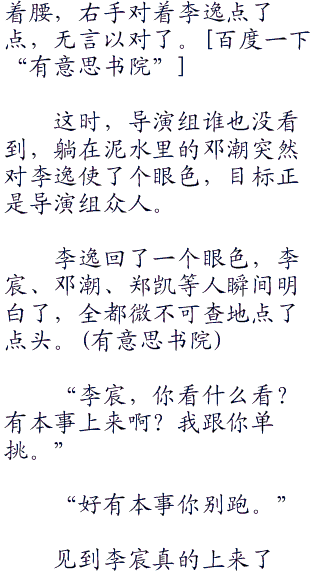 着腰，右手对着李逸点了
点，无言以对了。[百度一下
“有意思书院”]
这时，导演组谁也没看
到，躺在泥水里的邓潮突然
对李逸使了个眼色，目标正
是导演组众人。
李逸回了一个眼色，李
宸、邓潮、郑凯等人瞬间明
白了，全都微不可查地点了
点头。(有意思书院)
“李宸，你看什么看？
有本事上来啊？我跟你单
挑。”
“好有本事你别跑。”
见到李宸真的上来了